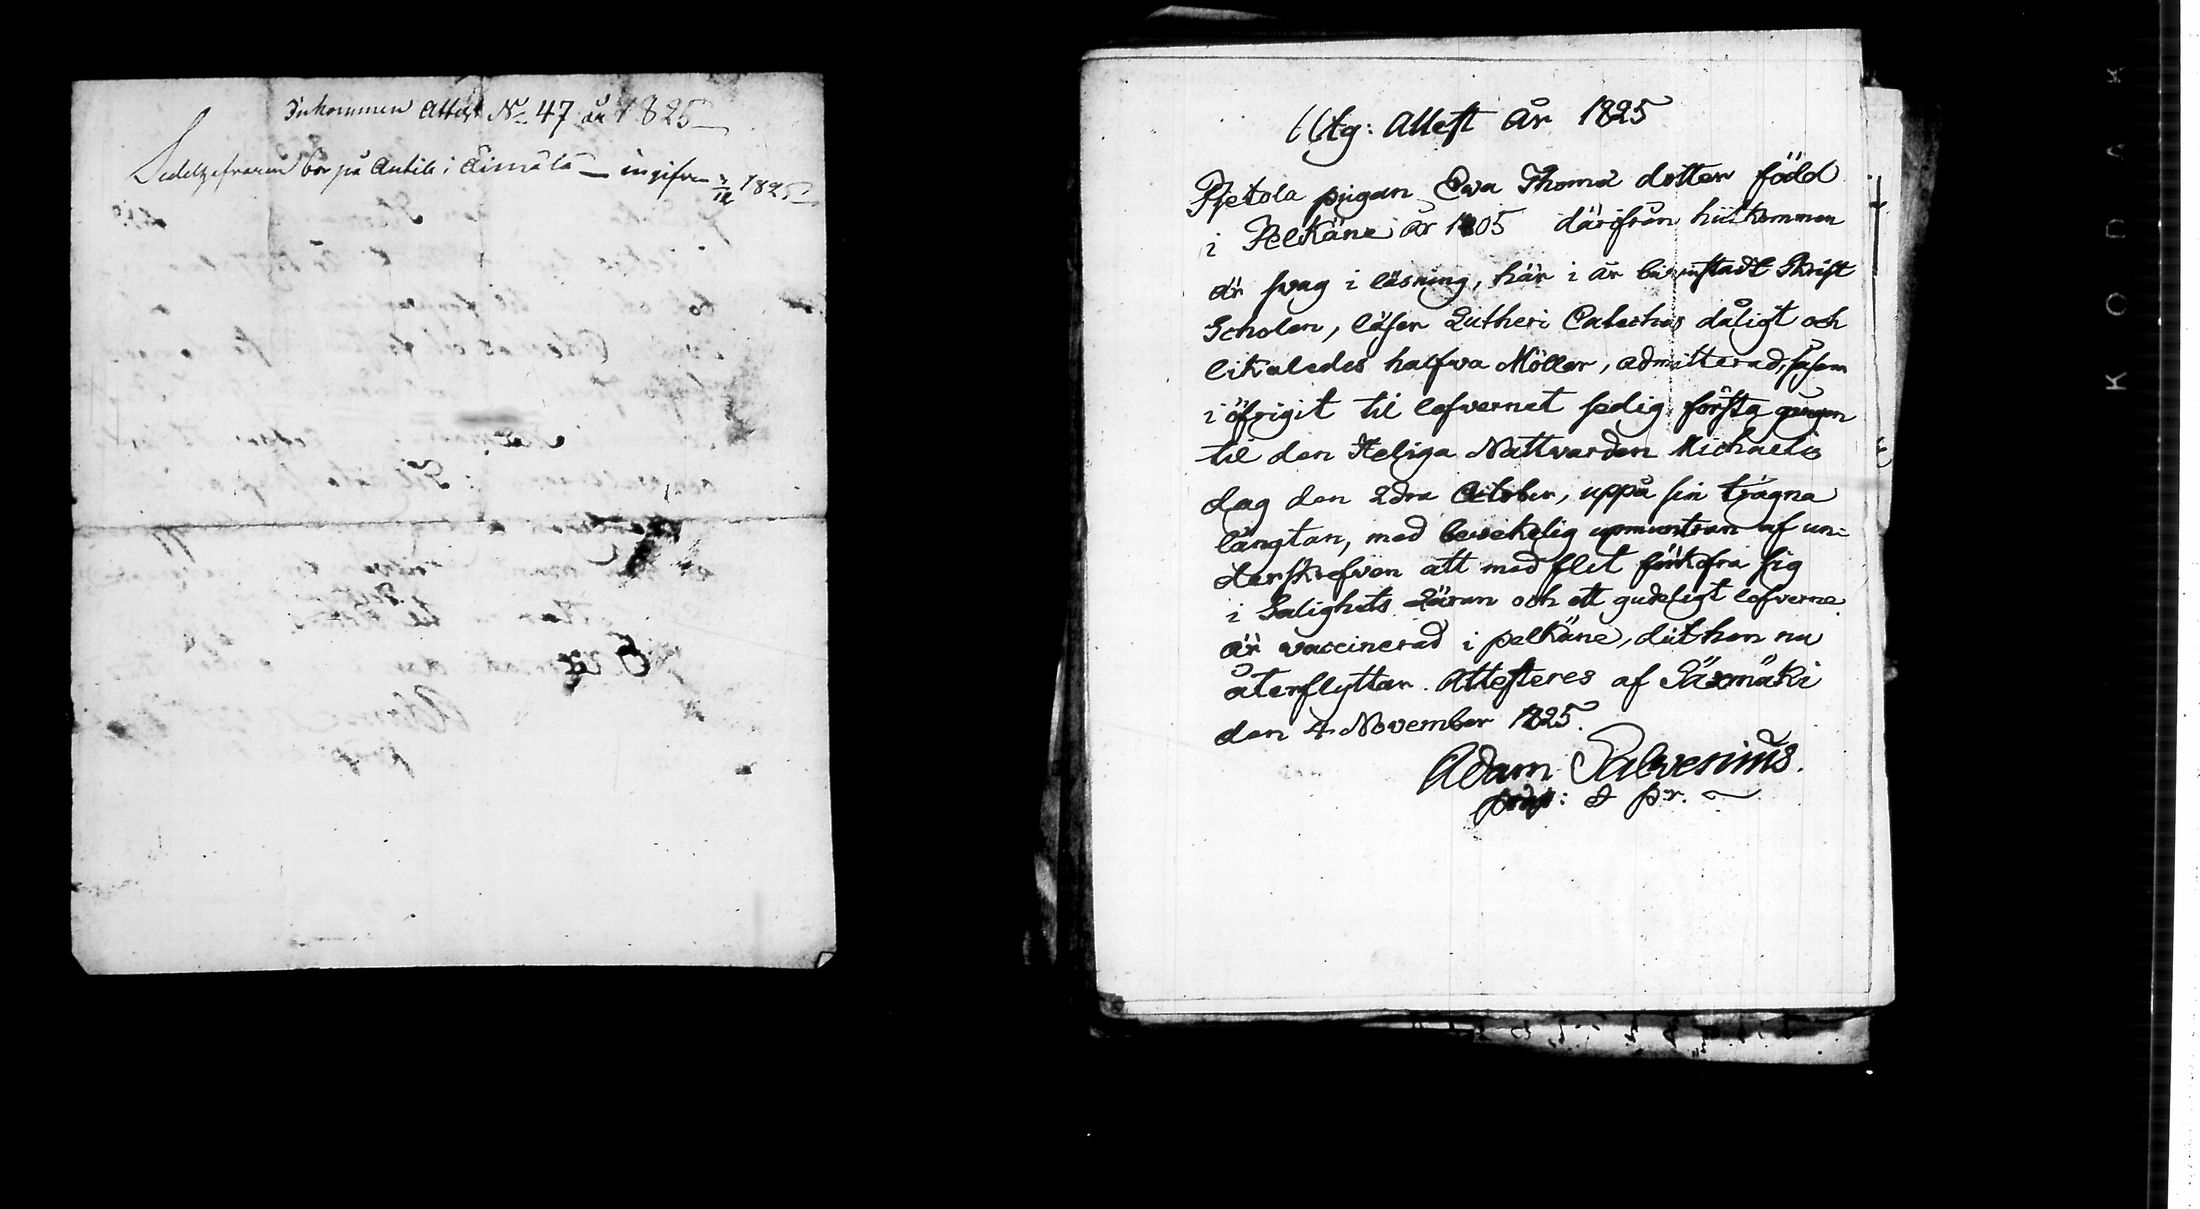 Inkommen Attest No 47 år 1825
bor på Anttila i Äimälä — ingifven 3/12 1825.
Utg: Attest År 1825
pigan Ewa Thomæ dotter född
i Pelkäne år 1805 därifrån hitkommen
är swag i läsning, här i år bewistadt Skrift
Scholen, läser Lutheri Cateches dåligt och
likaledes halfwa Möller, admitterad, såsom
i öfrigit til lefwernet sedig första gången
til den Heliga Nattvarden Michaelis
dag den 2dra October, uppå sin trägna
längtan, med bewekelig upmuntran af un=
derskrefven att med flit förkofra sig
i Salighets Läran och ett gudeligt lefverne.
är vaccinerad i pelkäne, dit hon nu
återflyttar. Attesteres af Säxmäki
den 4 November 1825.
Adam Salvenius.
præp: & pr.
KODAK